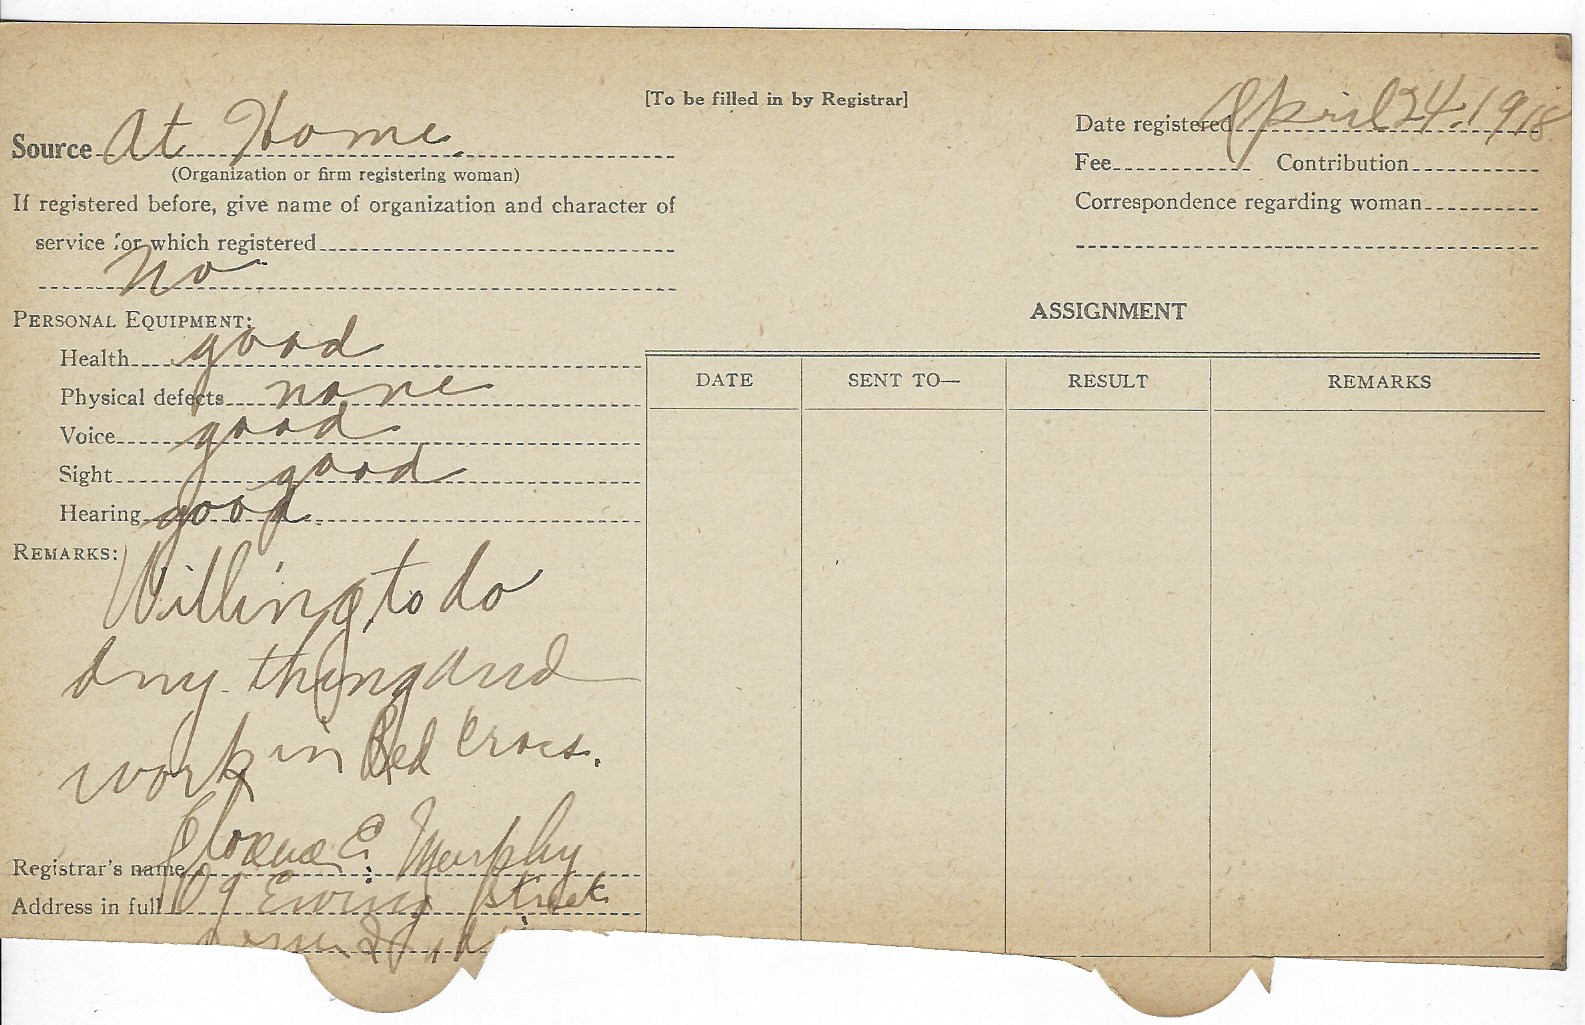 [To be filled in by Registrar]
Source At Home.
(Organization or firm registering woman)
If registered before, give name of organization and character of
service for which registered
No
Date registered April 24, 1918
Fee Contribution
Correspondence regarding woman
PERSONAL EQUIPMENT:
Health good
Physical defects none
Voice good
Sight good
Hearing good.
REMARKS: Willing to do
any thing and
work in Red Cross.
Registrar's name E. Murphy
Address in full Ewing Street
ASSIGNMENT
DATE SENT TO— RESULT REMARKS